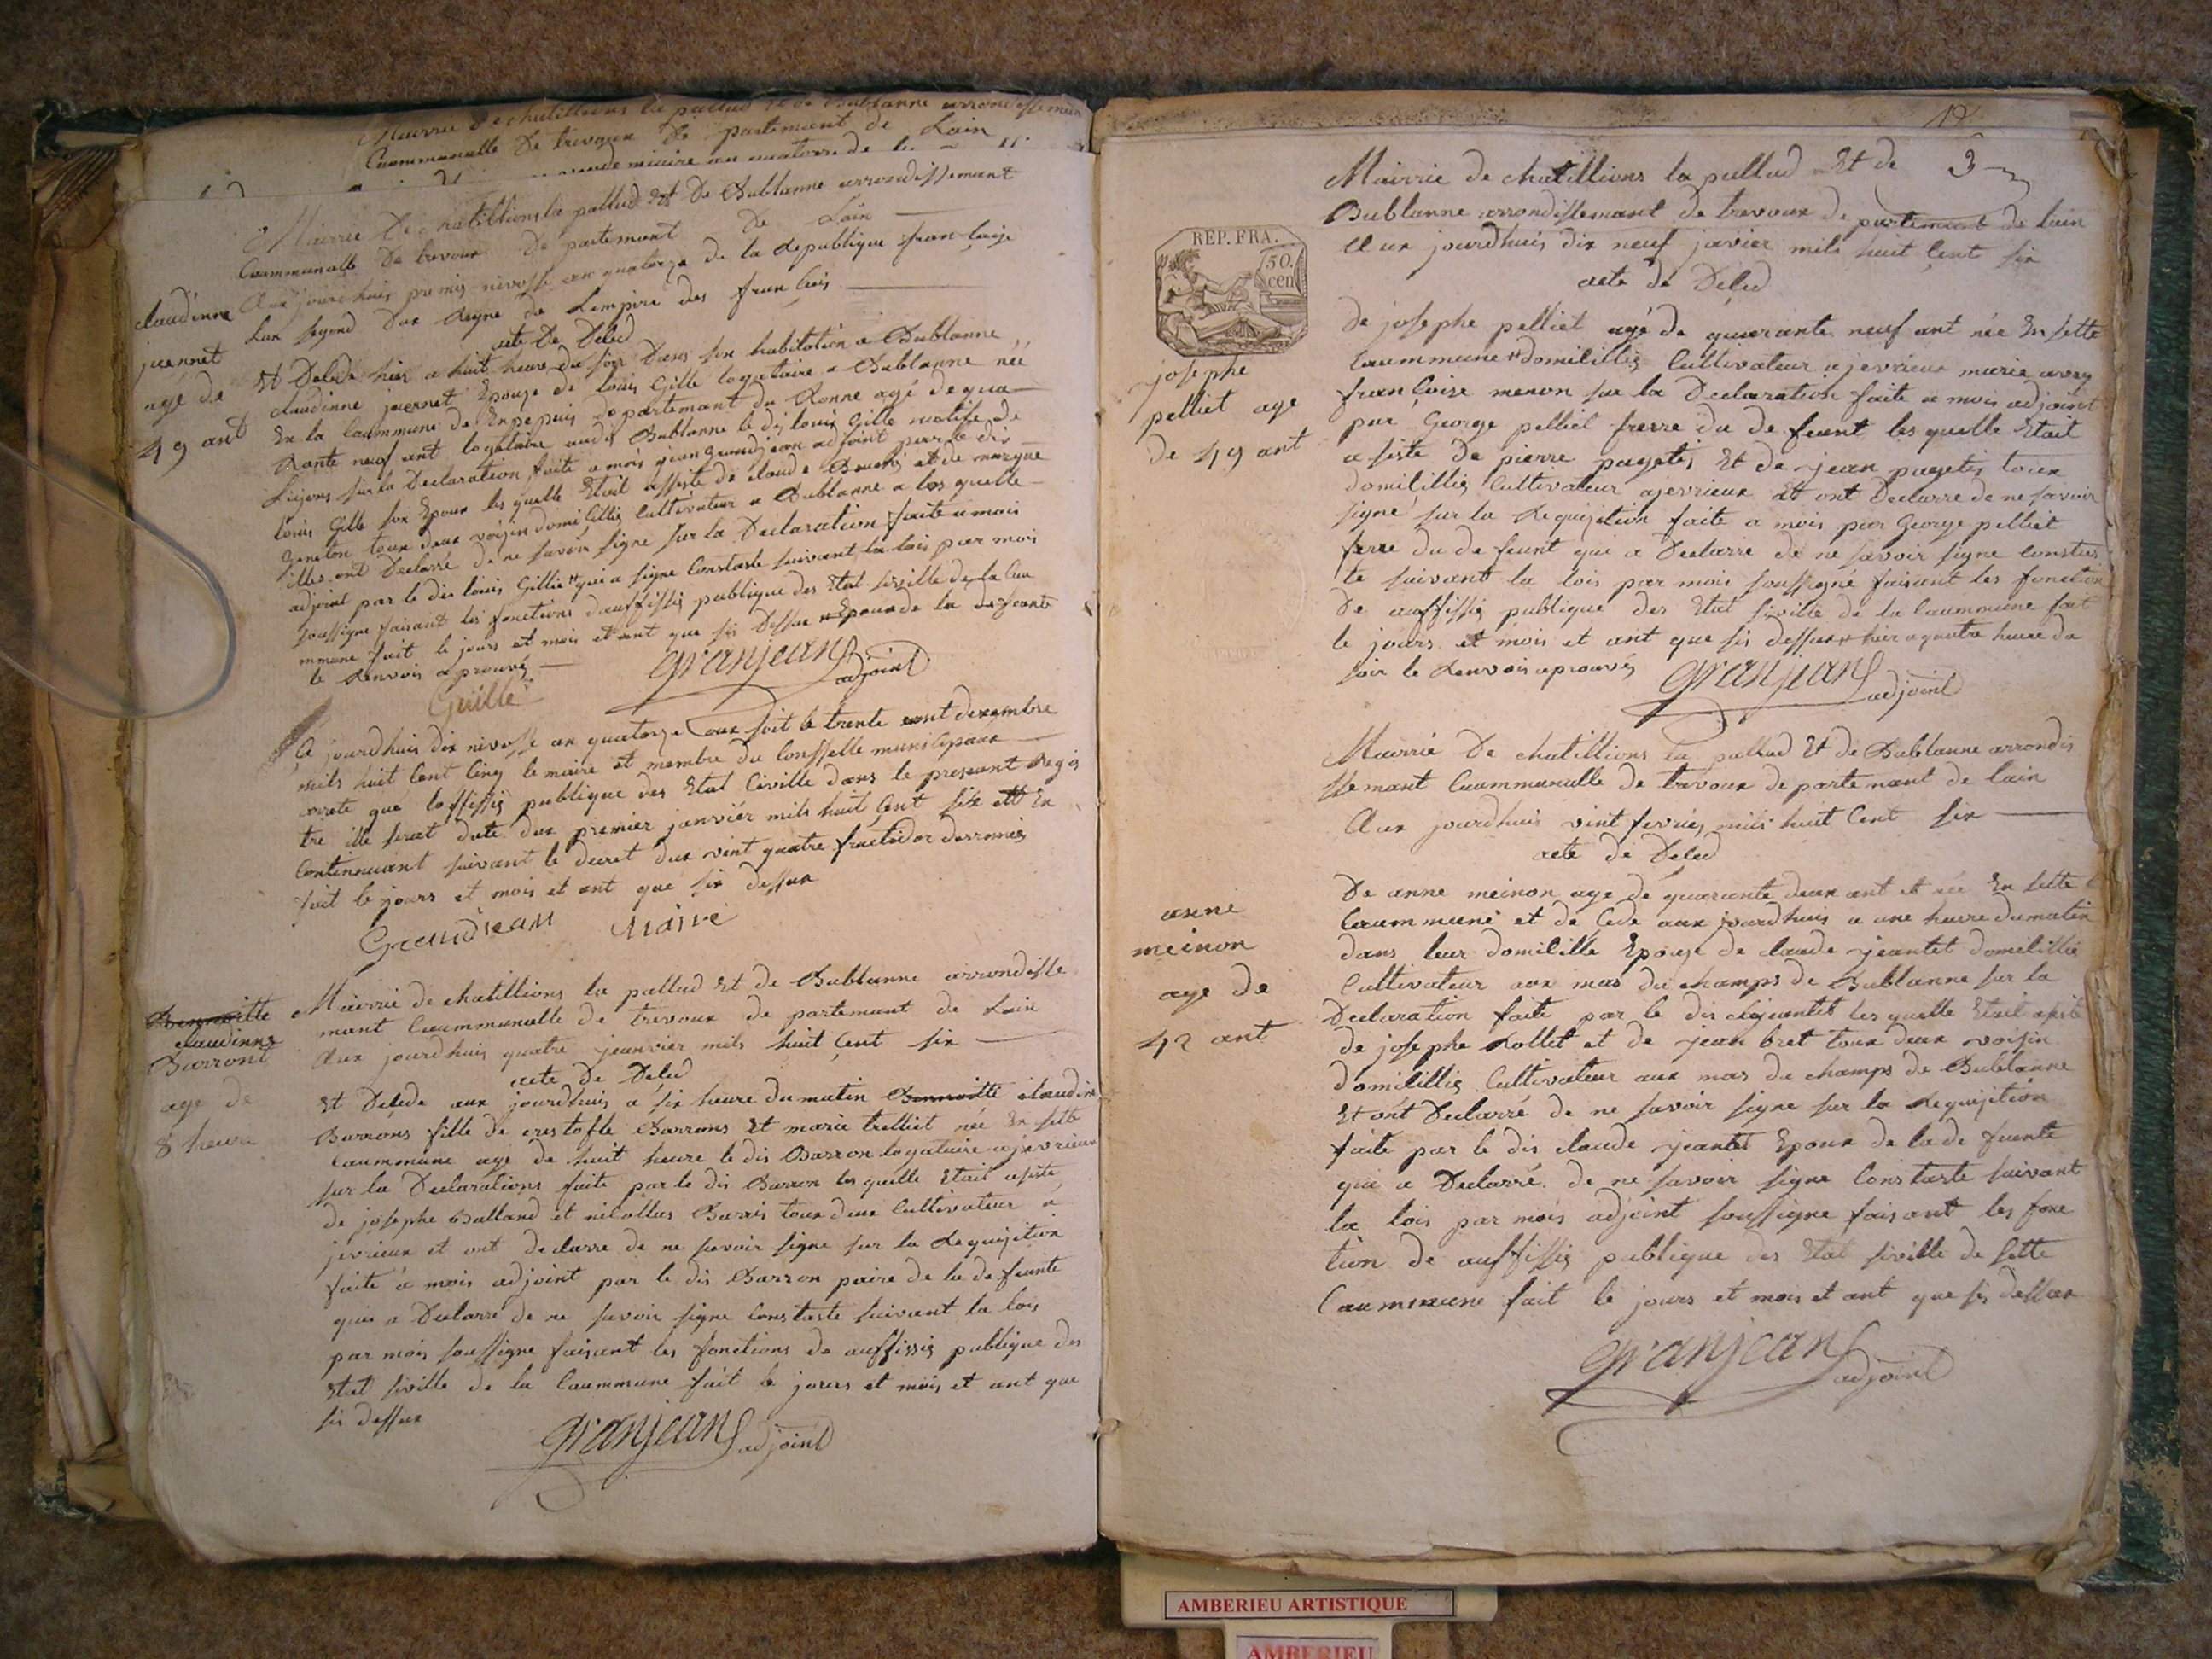 Mairrie de chatillions la pallud Et de Bublanne arrondissemant
Caummunalle De trevoux De partemant de Lain
Mairrie De chatillions la pallud Et De Bublanne arrondissemant
Caummunalle De trevoux De partemant De Lain
Aux jourdhuis premis nivosse an quatorze de la Republique fran Caise
Lan segond Dux Regne de Lempire des fran Cois
acte De Deled
claudinne
juennet
age de
49 ant
Et Delede hier a huit heure du soir Dans son habitation a Bublanne
claudinne juennet Epouze de louis Gille logataire a Bublanne née
En la Caummune De departemant du Ronne agé de qua
Rante neuf ant logataire audis Bublanne le dis louis Gille natife de
sur la Declaration faite a mois grandjean adjoint par le dis
louis Gille son Epoux les quelle Etait assiste de claude et de
toux deux voisin domicillies Cultivateur a Bublanne a les quelle
illes ont Declarré de ne savoir signe sur la Declaration faite a mois
adjoint par le dis louis Gillie # qui a signe Constaste suivant la lois par mois
soussigne faisant les fonctions dauffissis publique des Etat siville de la Cau
mmune fait le jours et mois et ant que sis Dessux # Epoux de la defeante
le Renvois aprouvés
Guille
granjean adjoint
Ce jourdhuis dix nivosse an quatorze aux soit le trente eunt dexembre
mils huit Cent Cinq le maire et membre du Conselle municipaux
arrete que loffissis publique des Etat Civille dans le pressant Regis
tre ille serat date dux premier janviér mils huit Cent six Et En
Continuant suivant le decret dux vint quatre fructidor dernnies
fait le jours et mois et ant que six dessux
Grandjean Maire
Bennoitte
claudinne
Barront
age de
8 heure
Mairrie de chatillions la pallud Et de Bublanne arrondisse
mant Caummunalle de trevoux de partemant de Lain
Aux jourdhuis quatre jeanvier mils huit Cent six
acte De Deled
Et Delede aux jourdhuis a six heure du matin Bennoitte claudine
Barrons fille de crestofle Barrons Et marie trelliet née En sette
Caummune age de huit heure le dis Barron logataire a jevrieux
sur la Declarations faite par le dis Barron les quelle Etait asiste
de josephe Bulland et nicollas Barris toux deux Cultivateur a
jevrieux et ont declarre de ne savoir signe sur la Requisition
faite a mois adjoint par le dis Barron paire de la de feunte
qui a Declarré de ne savoir signe Constaste suivant la lois
par mois soussigne faisant les fonctions de auffissis publique des
Etat siville de la Caummune fait le jours et mois et ant que
sis dessux
granjean adjoint
12
3
Mairrie de chatillions la pallud Et de
Bublanne arrondissemant de trevoux de partemant de lain
Aux jourdhuis dix neuf javier mils huit Cent six
acte de Deled
REP. FRA.
50.
cen
josephe
pelliet age
de 49 ant
De josephe pelliet agé de quarante neuf ant née En sette
Caummune # domicillies Cultivateur a jevrieux marie aveq
fran Coise menon sur la Declaration faite a mois adjoint
par George pelliet frerre du de feunt les quelle Etait
a siste de pierre pagetis Et de jean pagetis toux
domicillies Cultivateur a jevrieux Et ont Declarre de ne savoir
signé sur la Requisition faite a mois par George pelliet
frere du de feunt qui a Declarre de ne savoir signe Constas
te suivant la lois par mois soussigné faisant les fonction
De auffissis publique des Etat siville de la Caummune fait
le jours et mois et ant que sis dessux # hier a quatre heure du
soir le Renvois aprouvés
granjean adjoint
Mairrie De chatillions la pallud Et de Bublanne arrondis
ssemant Caummunalle de trevoux de partemant de lain
Aux jourdhuis vint fevries mils huit Cent six
acte de Deled
anne
meinon
age de
42 ant
De anne meinon age de quarante deux ant et née En sette
Caummune et de Cede aux jourdhuis a une heure du matin
dans leur domicille Epouze de claude jeantet domicillie
Cultivateur aux mas du champs de Bublanne sur la
Declaration faite par le dis les quelle Etait asiste
de josephe Rollet et de jean bret toux deux voisin
domicillies Cultivateur aux mas du champs de Bublanne
Et ont Declarré de ne savoir signe sur la Requisition
faite par le dis claude jeantet Epoux de la de feunte
qui a Declarré de ne savoir signe Constaste suivant
la lois par mois adjoint soussigne faisant les fonc
tion de auffissis publique des Etat siville de sette
Caummune fait le jours et mois et ant que sis dessux
granjean adjoint
AMBERIEU ARTISTIQUE
AMBERIEU